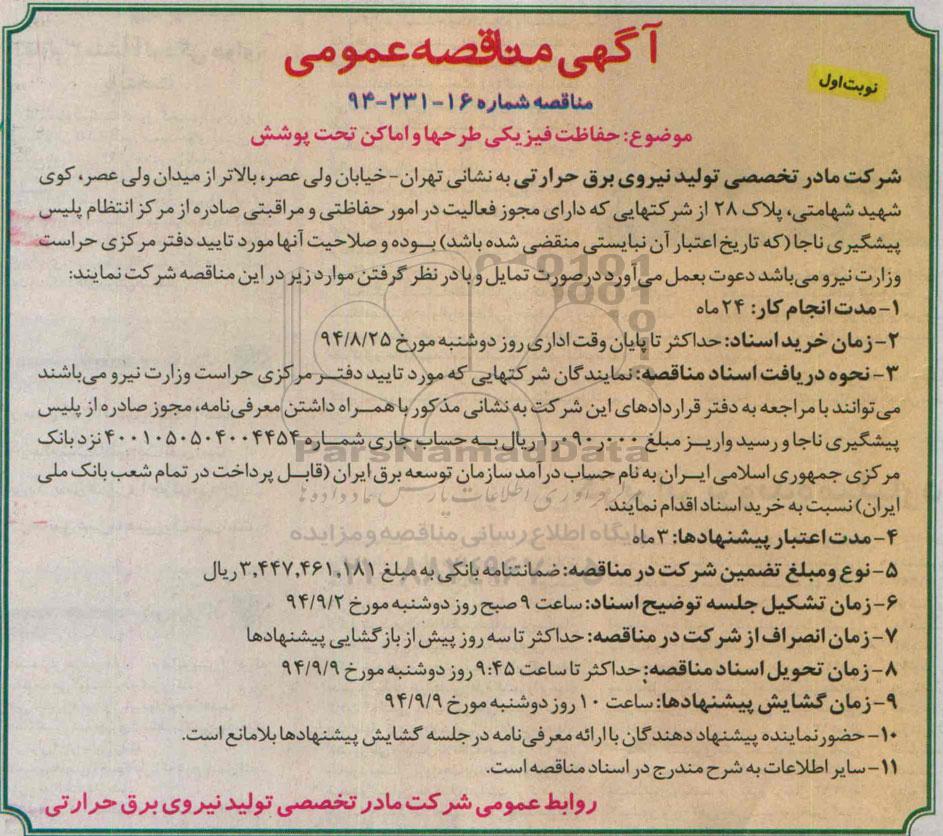 آگهی مناقصه عمومی
نوبت اول
مناقصه شماره ۱۶-۲۳۱-۹۴
موضوع: حفاظت فیزیکی طرحها و اماکن تحت پوشش
شرکت مادر تخصصی تولید نیروی برق حرارتی به نشانی تهران-خیابان ولی عصر، بالاتر از میدان ولی عصر، کوی
شهید شهامتی، پلاک ۲۸ از شرکتهایی که دارای مجوز فعالیت در امور حفاظتی و مراقبتی صادره از مرکز انتظام پلیس
پیشگیری ناجا (که تاریخ اعتبار آن نبایستی منقضی شده باشد) بوده و صلاحیت آنها مورد تایید دفتر مرکزی حراست
وزارت نیرو می‌باشد دعوت بعمل می‌آورد درصورت تمایل و با در نظر گرفتن موارد زیر در این مناقصه شرکت نمایند:
۱-مدت انجام کار: ۲۴ ماه
۲-زمان خرید اسناد: حداکثر تا پایان وقت اداری روز دوشنبه مورخ ۹۴/۸/۲۵
۳-نحوه دریافت اسناد مناقصه: نمایندگان شرکتهایی که مورد تایید دفتر مرکزی حراست وزارت نیرو می‌باشند
می‌توانند با مراجعه به دفتر قراردادهای این شرکت به نشانی مذکور با همراه داشتن معرفی‌نامه، مجوز صادره از پلیس
پیشگیری ناجا و رسید واریز مبلغ ۱٫۰۹۰٫۰۰۰ ریال به حساب جاری شماره ۴۰۰۱۰۵۰۵۰۴۰۰۴۴۵۴ نزد بانک
مرکزی جمهوری اسلامی ایران به نام حساب درآمد سازمان توسعه برق ایران (قابل پرداخت در تمام شعب بانک ملی
ایران) نسبت به خرید اسناد اقدام نمایند.
۴-مدت اعتبار پیشنهادها: ۳ ماه
۵-نوع و مبلغ تضمین شرکت در مناقصه: ضمانتنامه بانکی به مبلغ ۳,۴۴۷,۴۶۱,۱۸۱ ریال
۶-زمان تشکیل جلسه توضیح اسناد: ساعت ۹ صبح روز دوشنبه مورخ ۹۴/۹/۲
۷-زمان انصراف از شرکت در مناقصه: حداکثر تا سه روز پیش از بازگشایی پیشنهادها
۸-زمان تحویل اسناد مناقصه: حداکثر تا ساعت ۹:۴۵ روز دوشنبه مورخ ۹۴/۹/۹
۹-زمان گشایش پیشنهادها: ساعت ۱۰ روز دوشنبه مورخ ۹۴/۹/۹
۱۰-حضور نماینده پیشنهاد دهندگان با ارائه معرفی‌نامه در جلسه گشایش پیشنهادها بلامانع است.
۱۱-سایر اطلاعات به شرح مندرج در اسناد مناقصه است.
روابط عمومی شرکت مادر تخصصی تولید نیروی برق حرارتی
ParsNamadData
پایگاه اطلاع رسانی مناقصه و مزایده